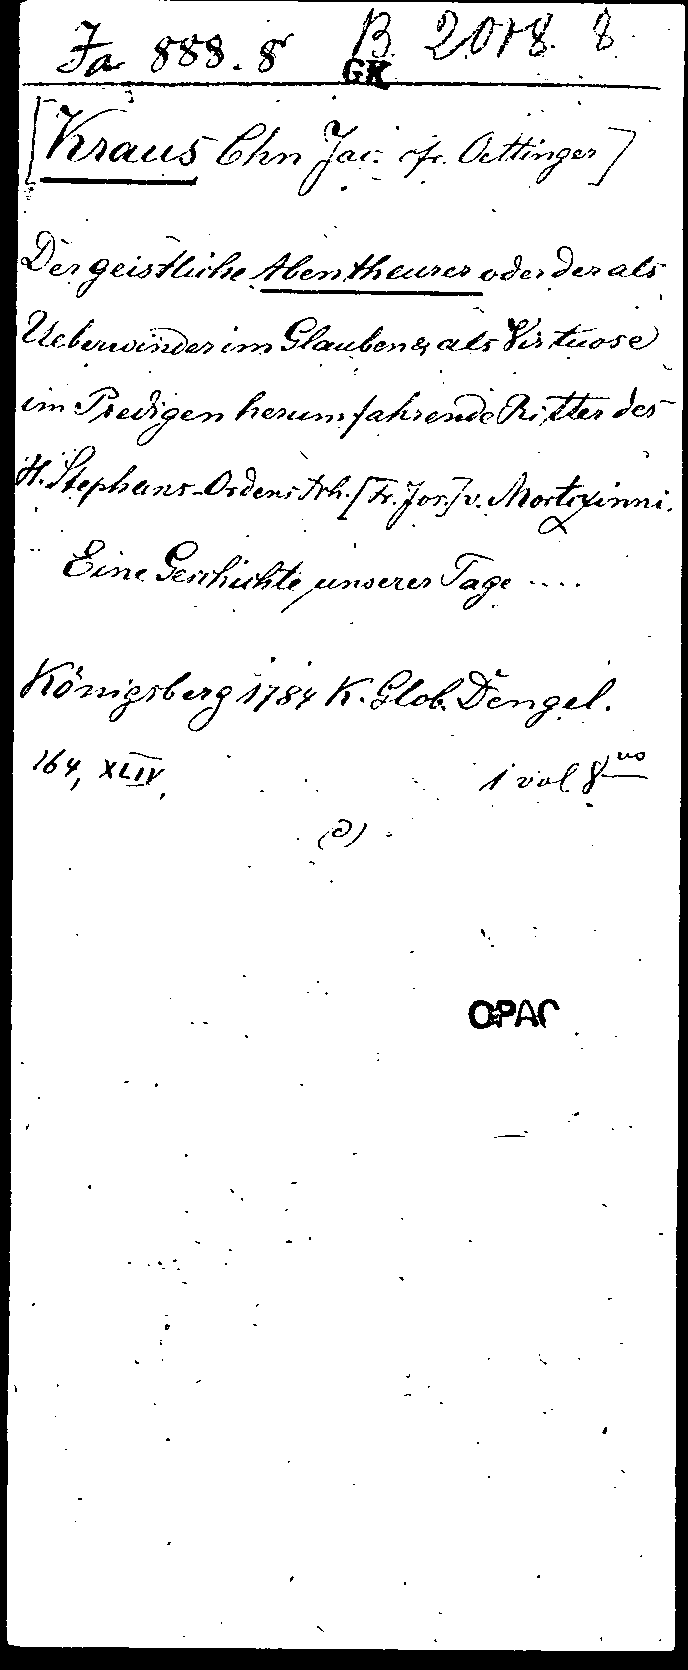 Ja 888. 8 B 2018. 8
GK
[Kraus Chn Jac. cfr. Oettinger]
Der geistliche Abentheurer oder der als
Ueberwinder im Glauben & als Virtuose
im Predigen herumfahrende Ritter des
H. Stephans-Ordens Frh. [Fr. Jos.] v. Mortczinni.
Eine Geschichte unserer Tage ....
Königsberg 1784 K. Glob. Dengel.
164, XLIV, 1 vol 8vo
(d)
OPAC